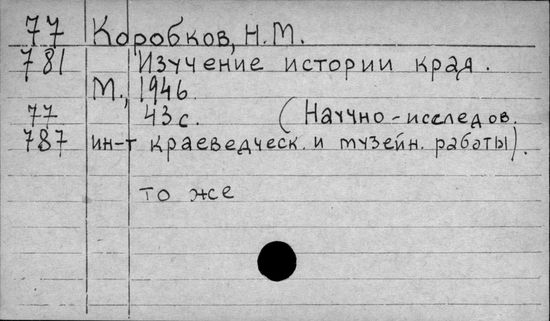 77 Коробков, Н.М.
781 Изучение истории края.
М., 1946.
77 43 с. (Научно-исследов.
787 ин-т краеведческ. и музейн. работы).
то же